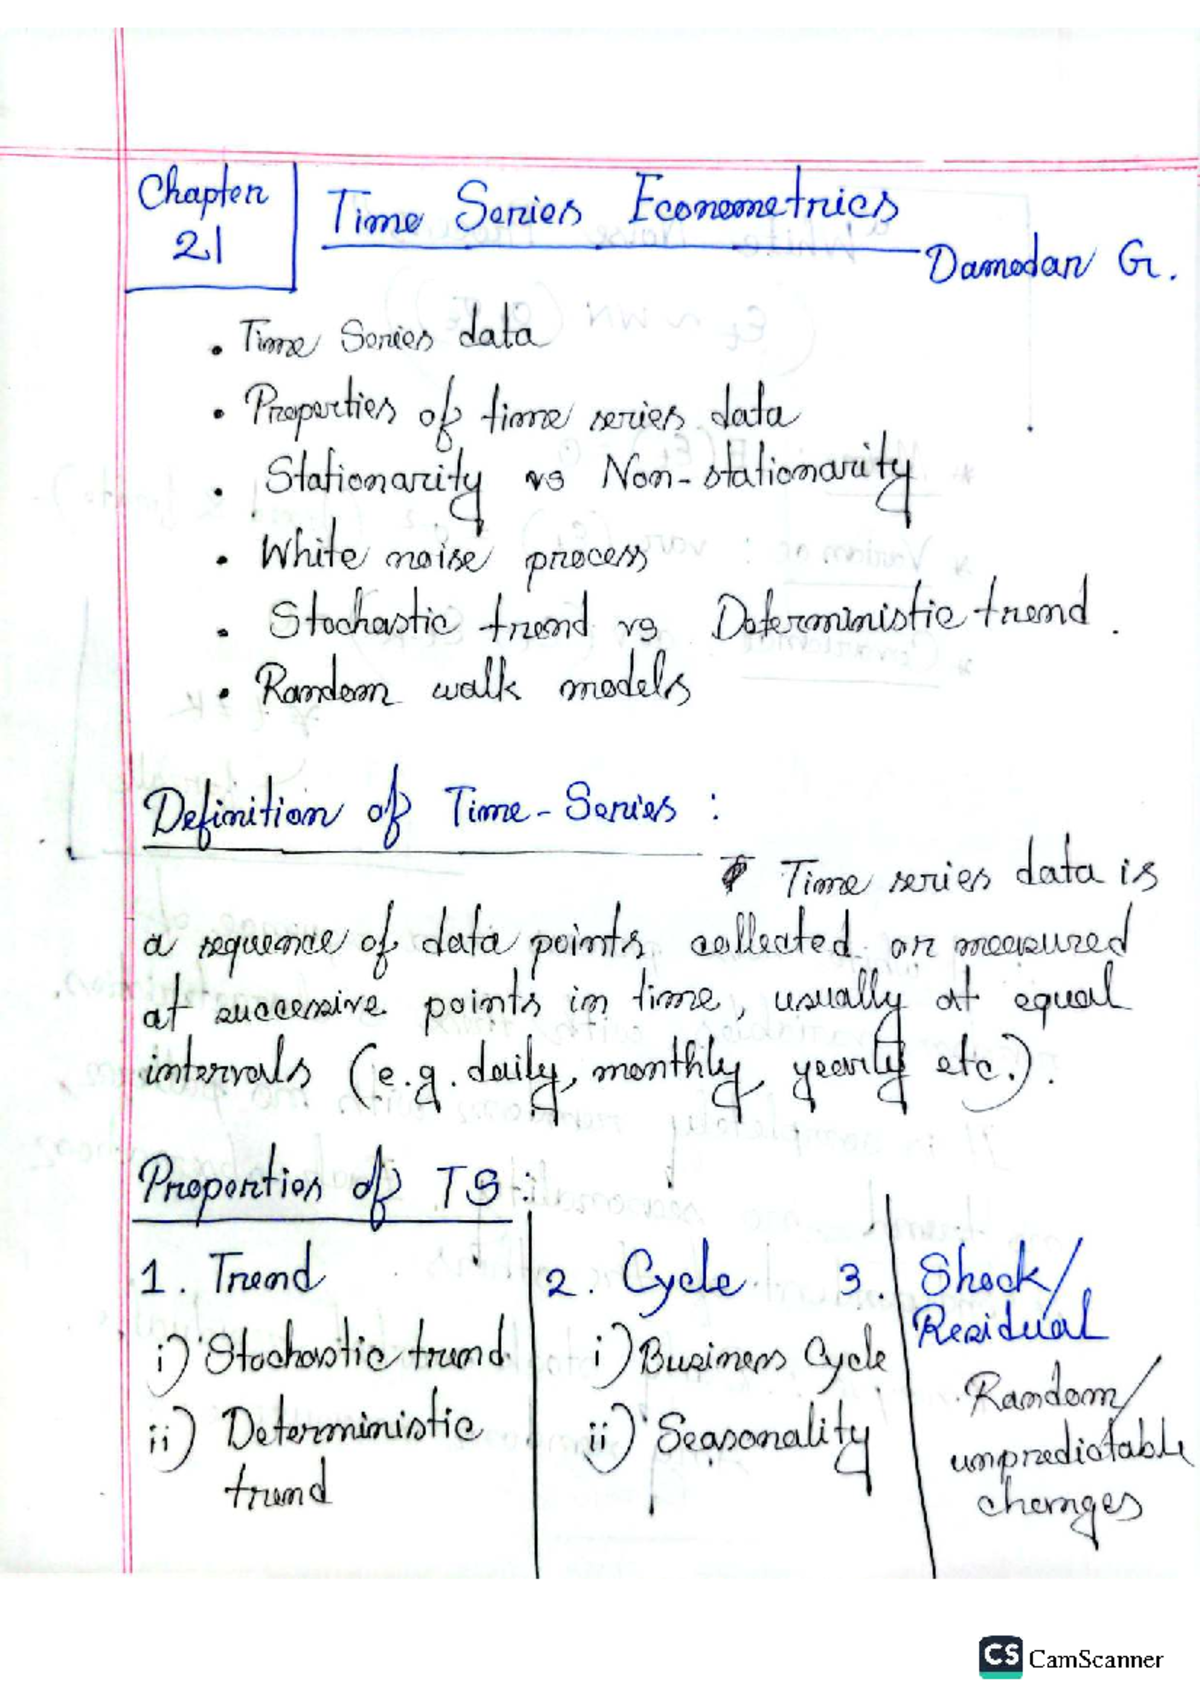 Chapter
21
Time Series Econometrics
Damodar G.
• Time Series data
• Properties of time series data
• Stationarity vs Non-stationarity
• White noise process
• Stochastic trend vs Deterministic trend.
• Random walk models
Definition of Time-Series :
Time series data is
a sequence of data points collected or measured
at successive points in time, usually at equal
intervals (e.g. daily, monthly, yearly etc.).
Properties of TS :
1. Trend
i) Stochastic trend
ii) Deterministic
trend
2. Cycle
i) Business Cycle
ii) Seasonality
3. Shock/
Residual
Random/
unpredictable
changes
CS CamScanner